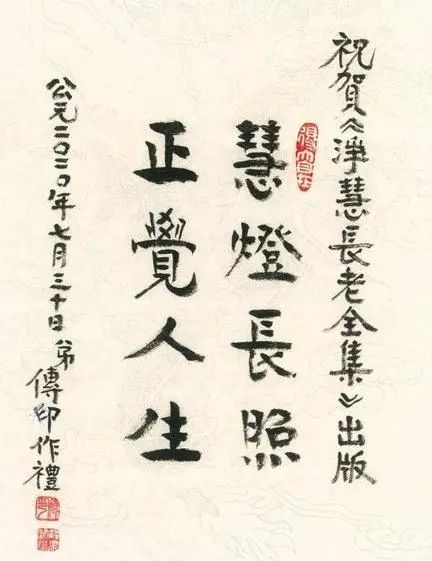 祝賀《淨慧長老全集》出版
慧燈長照
正覺人生
公元二〇二〇年七月三十日弟
傳印作禮